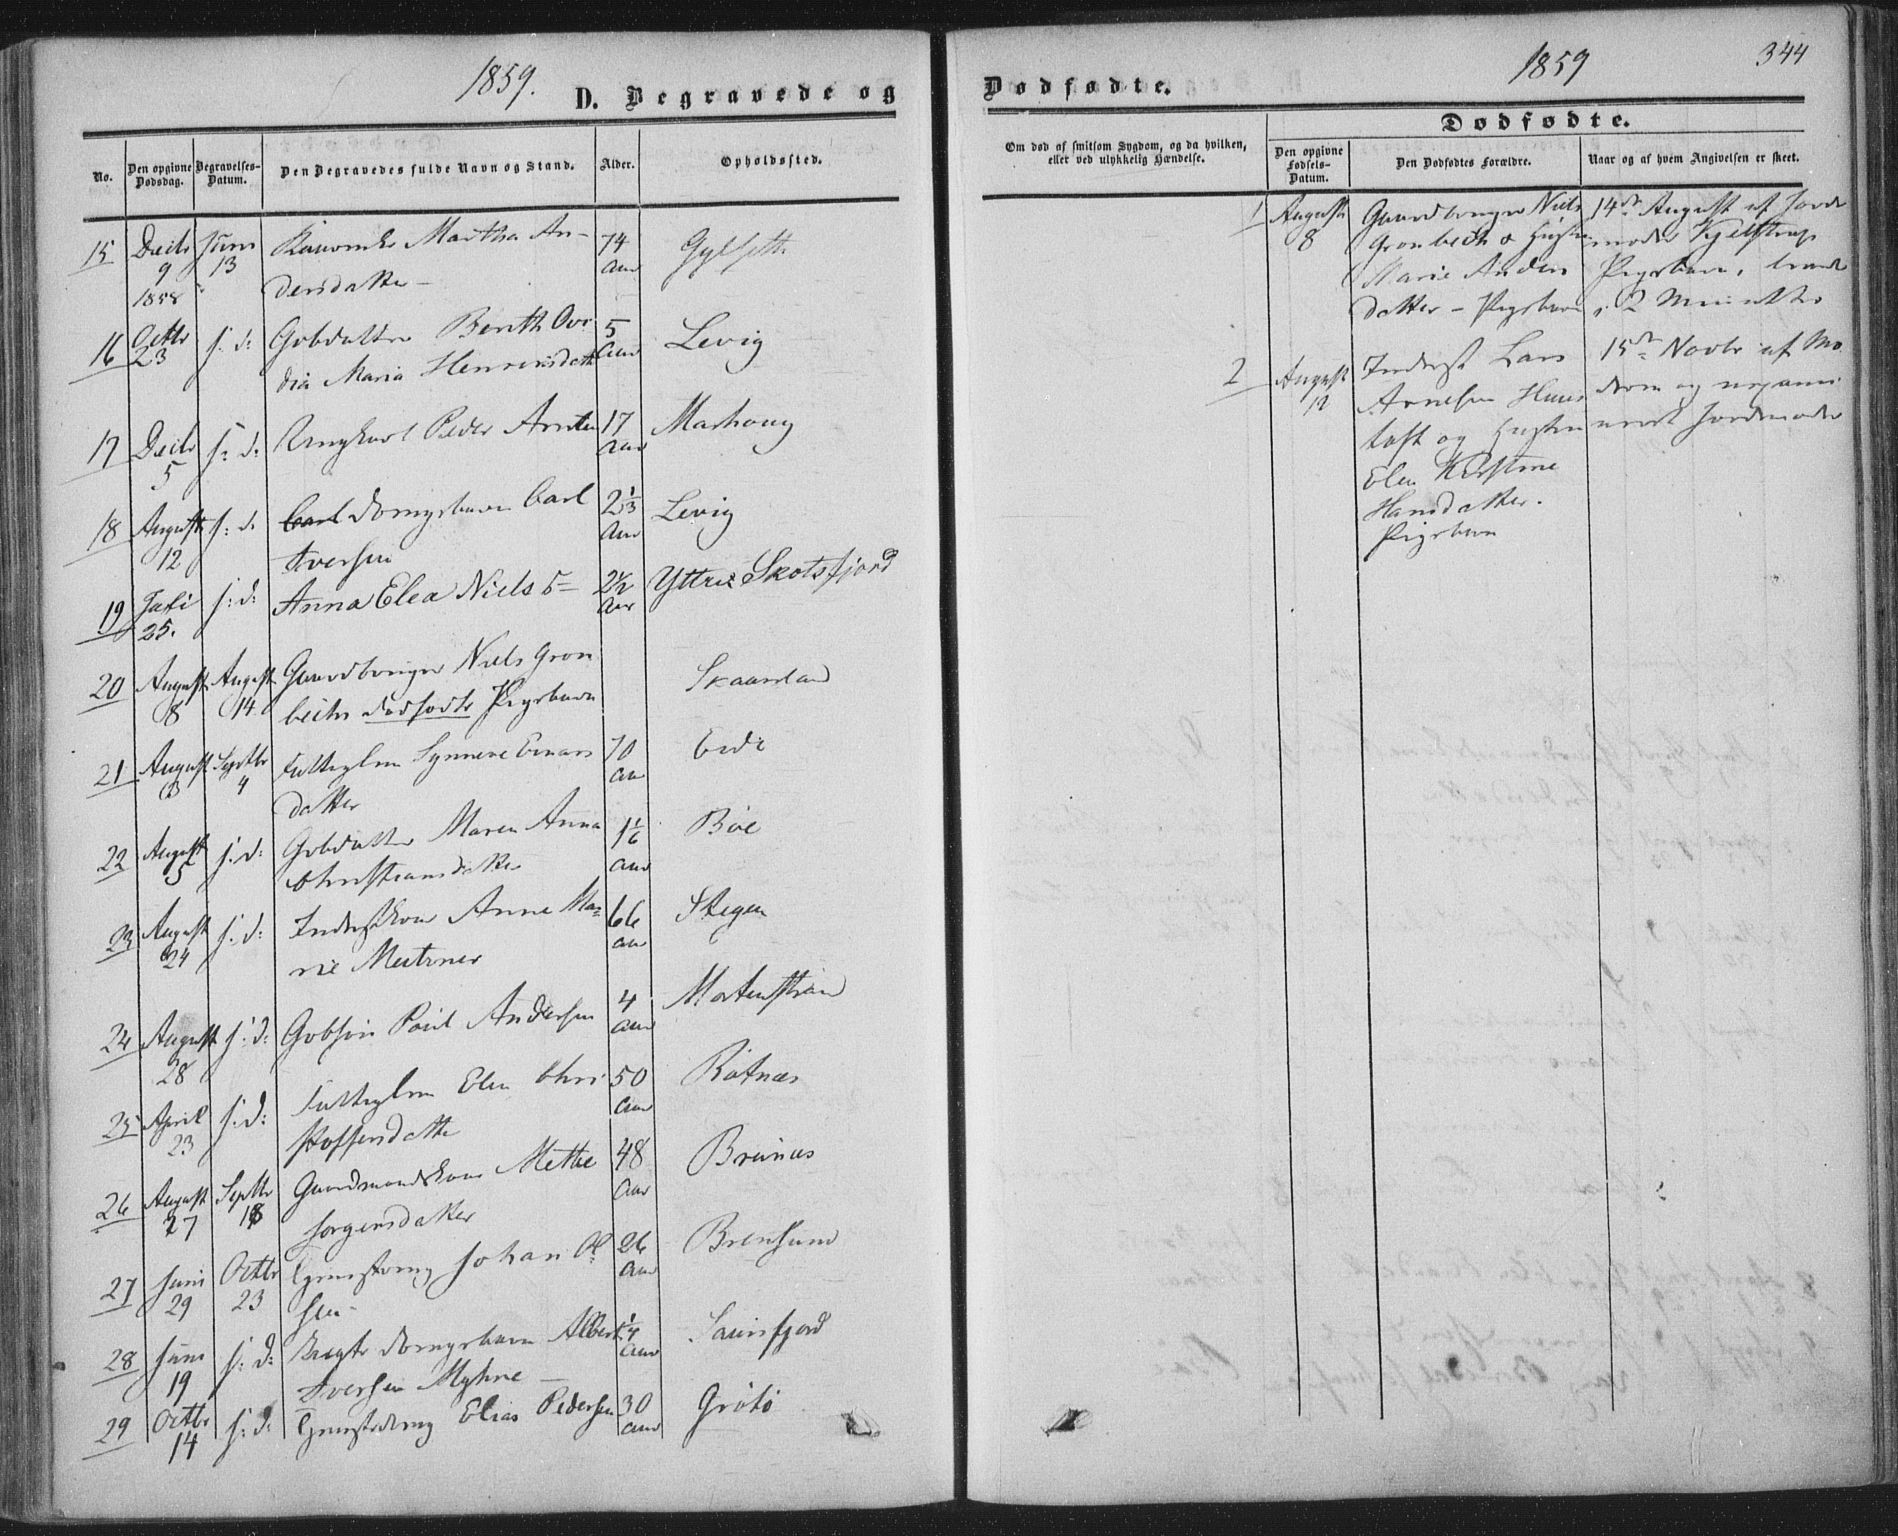 1859.
D. Begravede og
No.
Den opgivne Dødsdag.
Begravelses-Datum.
Den Begravedes fulde Navn og Stand.
Alder.
Opholdssted.
15 Decbr 9 1858 Juni 13 Martha An- 74 Aar Gylseth
dersdatter –
16 Octbr 23 s: d: Gbdatter Berith 5 Aar Levig
Maria Henriksdatter
17 Decbr 5 s: d: Ungkarl Peder Arntsen 17 Aar Marhaug
18 August 12 s: d: Carl Drengebarn Carl 2 1/3 Aar Levig
Iversen
19 Juli 25. s: d: Anna Elea Niels D– 2 1/2 Aar Yttre Skotsfjord
20 August 8 August 14 Gaardbruger Niels Gron Skaanland
bechs dødfødte Pigebarn
21 August 8 Septbr 4 Fattiglem Synneve Einars 70 Aar Eide
datter
22 August 5 s: d: Gbdatter Maren Anna 1 1/6 Aar Böe
Christiansdatter
23 August 24 s: d: Inderstkone Anne Ma- 66 Aar Stegen
rie
24 August 28 s: d: Gbsön Poul Andersen 4 Aar Mortenstran
25 April 23 s: d: Fattiglem Elen Chri 50 Aar Rötnæs
stoffersdatter
26 August 27 Septbr 18 Gaardmandskone Mette 48 Aar Brennæs
Jorgensdatter
27 Juni 29 Octbr 23 Johan Ol 26 Aar Brensund
sen –
28 Juni 19 s: d: Uægte Drengebarn Albert 1/4 Aar Saursfjord
Iversen Myhre –
29 Octbr 14 s: d: Elias Pedersen 30 Aar Grötö
1859
344
Dødfødte.
Om død af smitsom Sygdom, og da hvilken, eller ved ulykkelig Hændelse.
Dødfødte.
Den opgivne Fødsels-Datum.
Den Dødfødtes Forældre.
Naar og af hvem Angivelsen er skeet.
1 August 8 Gaardbruger Niels 14de August af Jorde
Gronbech & Hustru moder Kjelstrup
Marie Anders Pigebarn,
datter – Pigebarn
2 August 12 Inderst Lars 15de Novbr af Mo
Arnesen Huus deren og
toft og Hustru Jordmoder
Elen Kirstine
Hansdatter.
Pigebarn